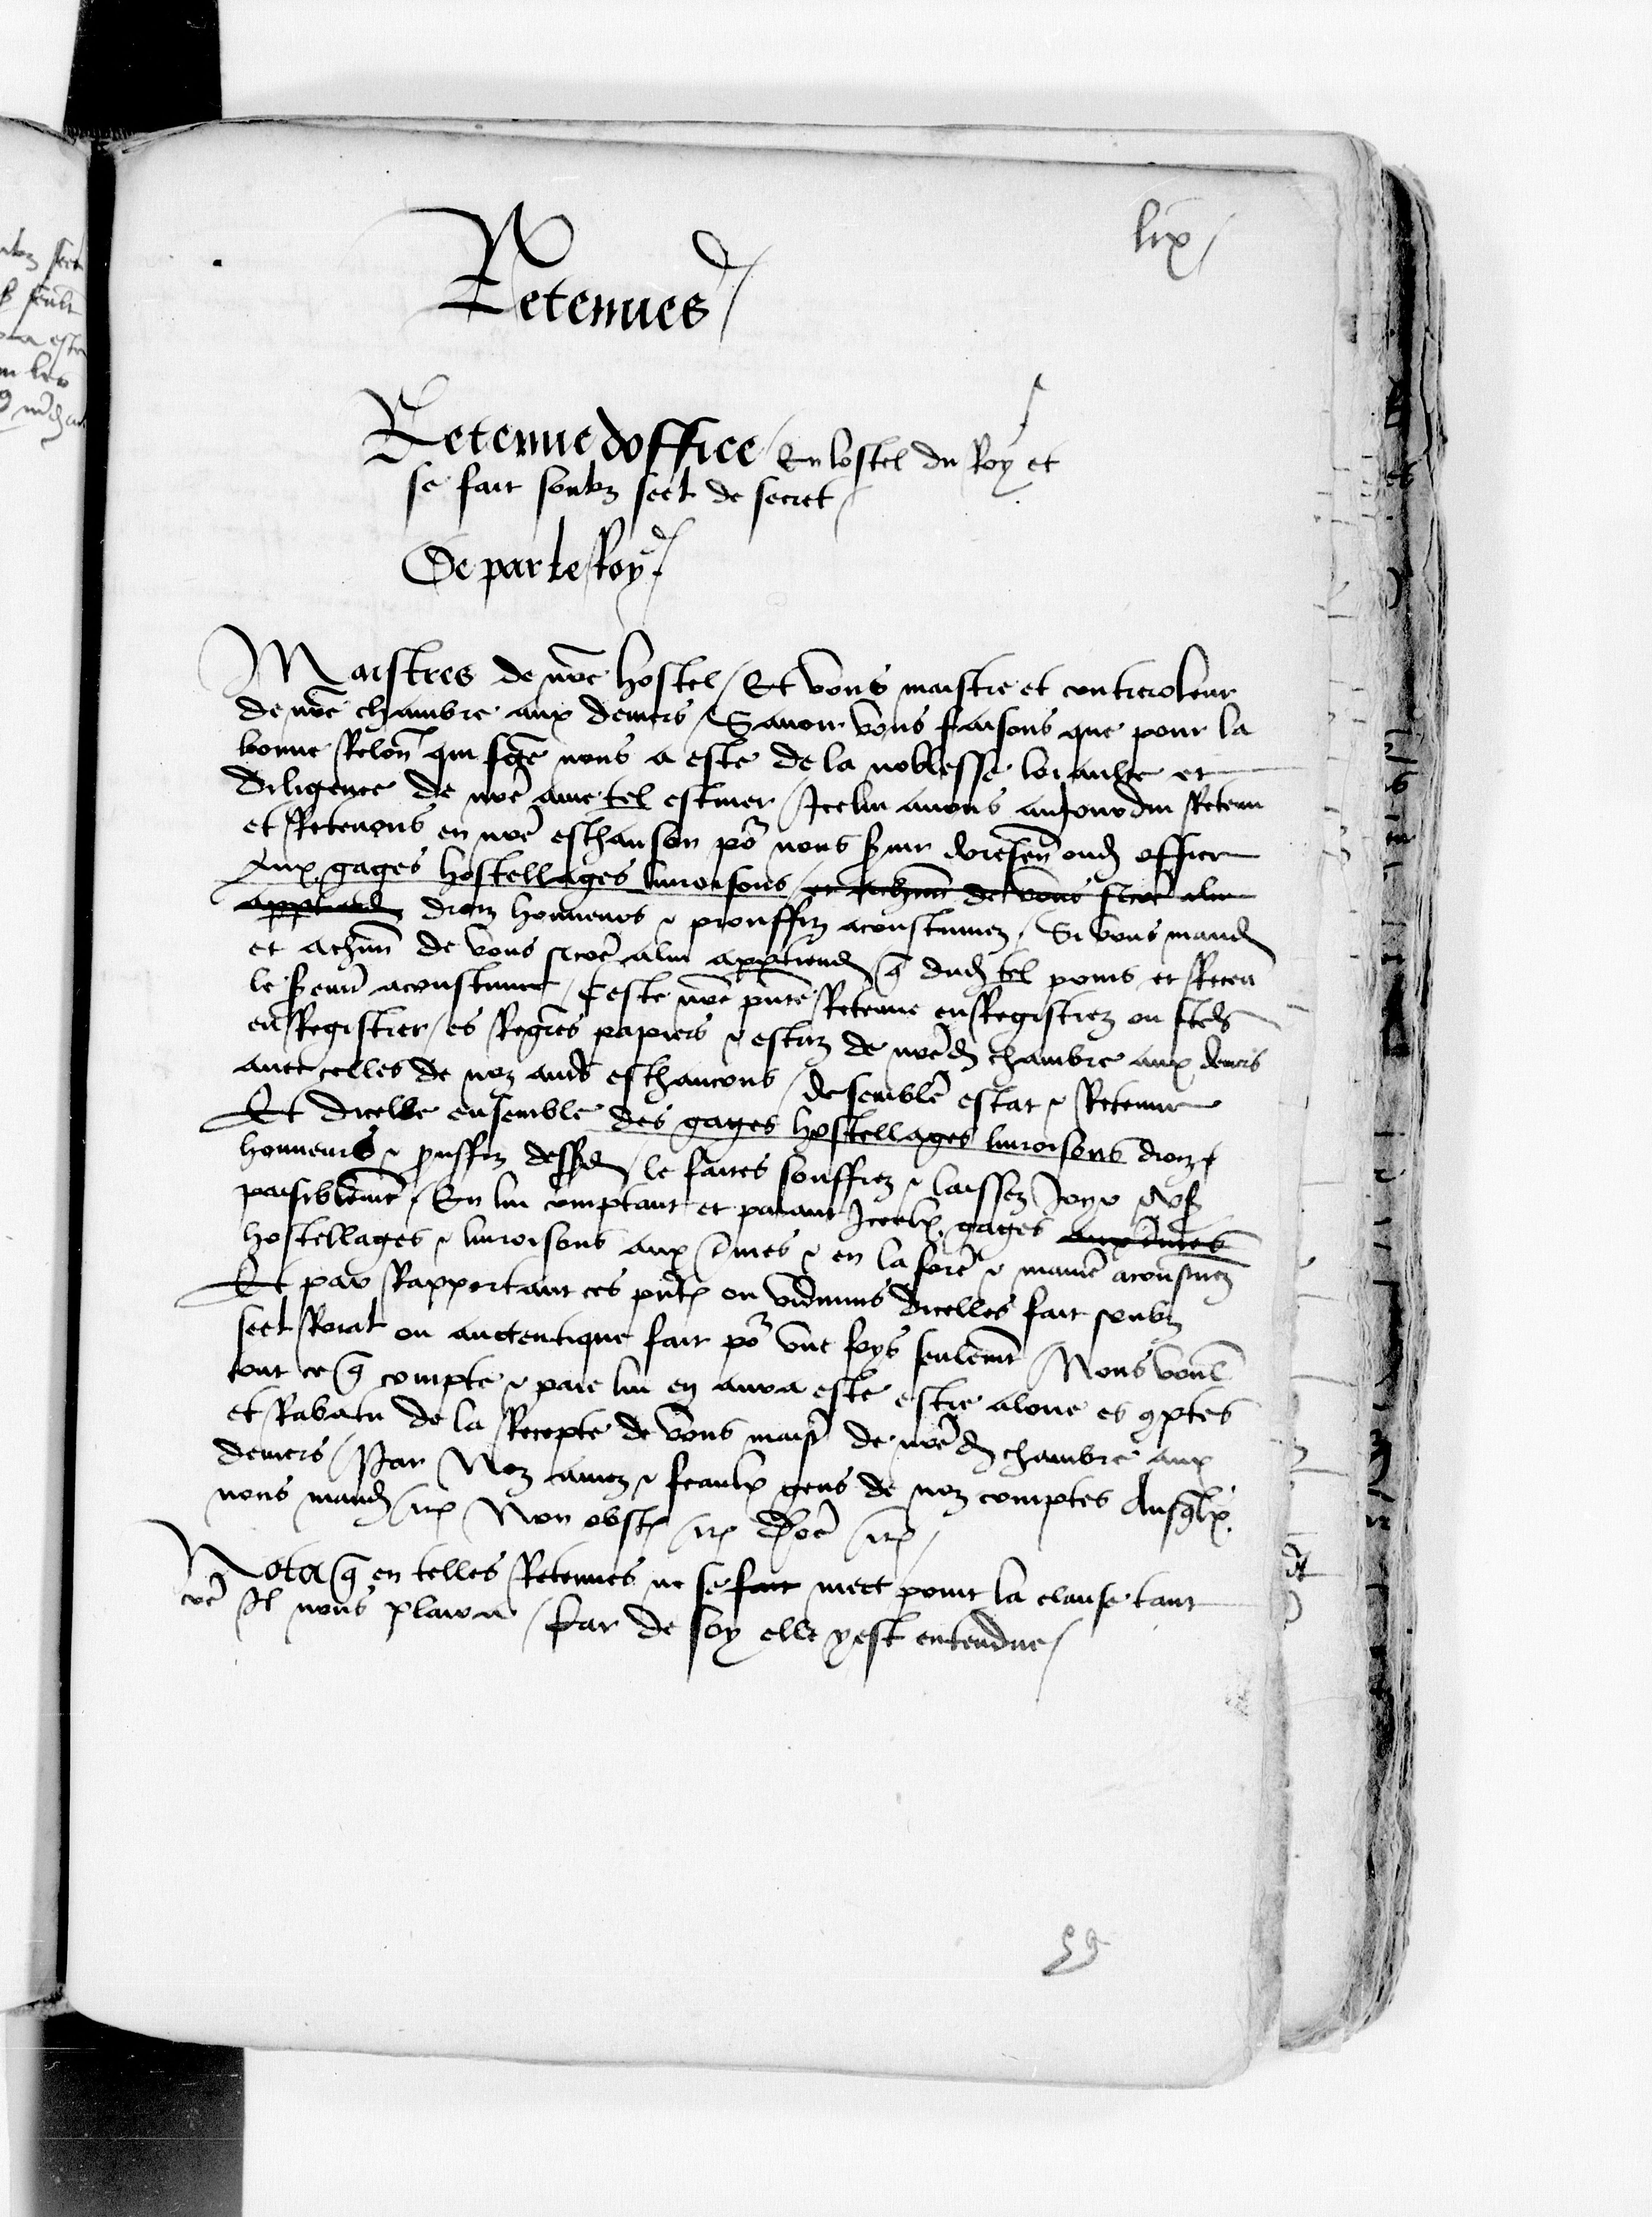 lix
Retenues
Retenue doffice / En lostel du Roy et
se fait soubz seel de secret /
De par le Roy /
Maistres de nr̃e hostel / Et vous maistre et contreroleur
de nr̃e chambre aux deniers / Sauoir vous faisons que pour la
bonne Relõn qui fc̃e nous a este de la noblesse loiaulte et
diligence de nr̃e ame tel escuier / Icelui auons auJourdui Retenu
et Retenons en nr̃e eschanson põ nous s̃uir doresen̄ oud officе
Aux gages hostellages liuroisons / et a chũn de vous sicõe a lui
appartiend droiz honneurs & prouffiz acoustumez / Si vous mand
et a chũn de vous sicõe a lui appartiend q̃ dud tel prins et Receu
le serm̃t acoustume / Ceste nr̃e pñte Retenue enRegistrez ou faictes
enRegistrer / es Regr̃es papiers & escriz de nr̃ed chambre aux deniers
auec celles de noz aut̃s eschancons / de semblẽ estat & Retenue
Et dicelle ensemble des gages hostellages liuroisons droiz
honneurs & prouffiz dessusd / le faictes souffrez & laissez Joyr & Vser
paisiblem̃t / En lui comptant et paiant Iceulx gages aux t̃mes
hostellages & liuroisons aux t̃mes & en la forẽ & manier̃e acoustumez
Et par Rapportant ces pñtes ou vidimus dicelles fait soubz
seel Roial ou auctentique fait põ vne foys seulem̃t Nous voul̃
tout ce q̃ compte & paie lui en aura este estre aloue es 9ptes
et Rabatu de la Recepte de vous maistre de nr̃ed chambre aux
deniers / Par Noz amez & feaulx gens de noz comptes Ausquelx
nous mand / etc̃ Non obst̃ / etc̃ Doñe / etc̃ /
Nota q̃ en telles Retenues ne se fait mect point la clause tant
cõe Il nous plaira / Car de soy elle y est entendue /
59